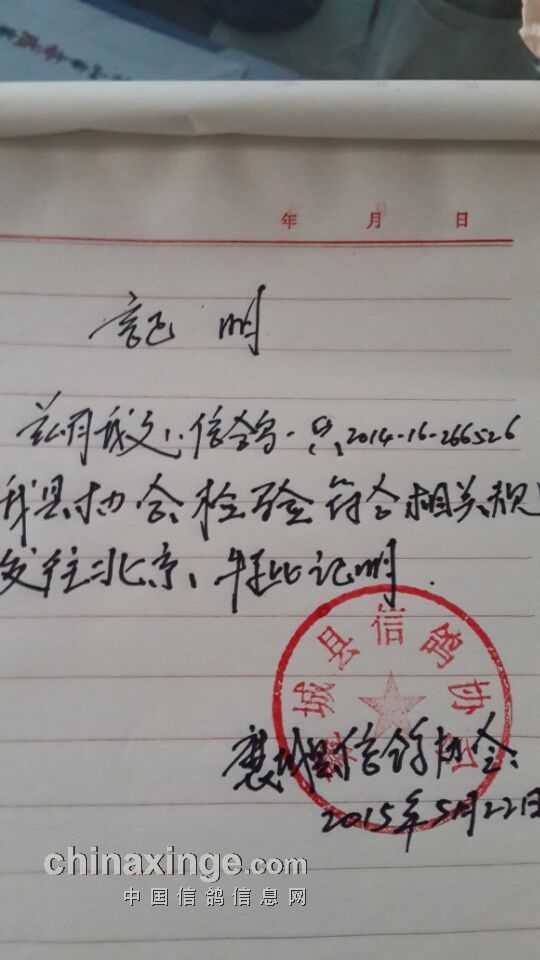 年 月 日
証明
兹有我县信鸽一只2014-16-266526
我县协会检验符合相关规
发往北京、特此证明.
襄城县信鸽协会
襄城县信鸽协会
2015年5月22日
chinaxinge.com
中国信鸽信息网